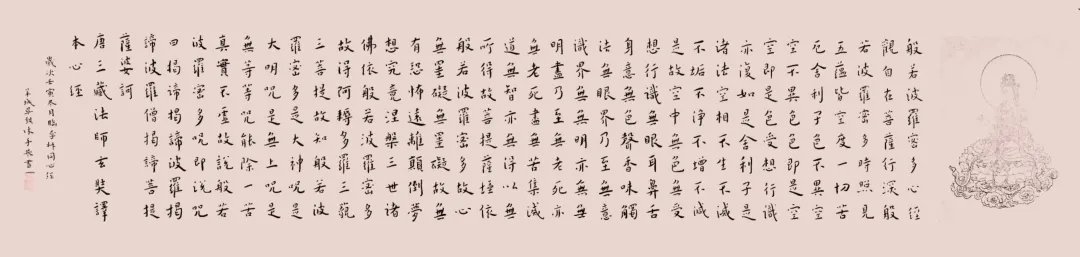 般若波羅密多心經
觀自在菩薩行深般
若波羅密多時照見
五蘊皆空度一切苦
厄舍利子色不異空
空不異色色即是空
空即是色受想行識
亦復如是舍利子是
諸法空相不生不滅
不垢不淨不增不減
是故空中無色無受
想行識無眼耳鼻舌
身意無色聲香味觸
法無眼界乃至無意
識界無無明亦無無
明盡乃至無老死亦
無老死盡無苦集滅
道無智亦無得以無
所得故菩提薩埵依
般若波羅密多故心
無罣礙無罣礙故無
有恐怖遠離顛倒夢
想究竟涅槃三世諸
佛依般若波羅密多
故得阿耨多羅三藐
三菩提故知般若波
羅密多是大神咒是
大明咒是無上咒是
無等等咒能除一苦
真實不虛故說般若
波羅密多咒即說咒
曰揭諦揭諦波羅揭
諦波羅僧揭諦菩提
薩婆訶
唐三藏法師玄奘譯
本心經
歲次壬寅冬月臨